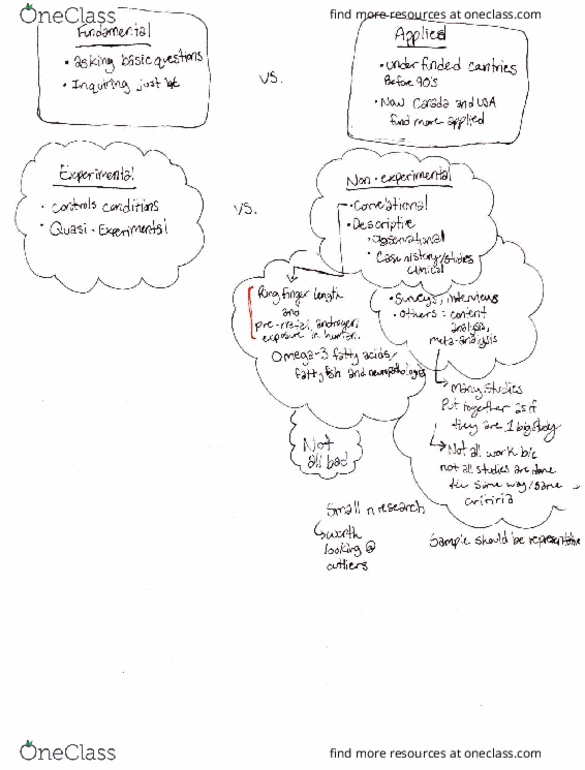 OneClass
find more resources at oneclass.com
Fundamental
• asking basic questions
• Inquiring just bc
vs.
Applied
• Under funded cantries
Before 90's
• Now Canada and USA
fund more applied
Experimental
• controls conditions
• Quasi-Experimental
vs.
Non-experimental
• Correlational
• Descriptie
• Observational
• Case history/studies
clinical
• Surveys, interviews
• Others: content
analysis,
meta-analysis
Ring finger length
and
pre-natal androgen
exposure in human.
Omega-3 fatty acids/
fatty fish and neuropathologies
Not
all bad
Many studies
Put together as if
they are 1 big study
Not all work b/c
not all studies are done
the same way/same
Small n research
worth
looking @
outliers
Sample should be representative
OneClass
find more resources at oneclass.com